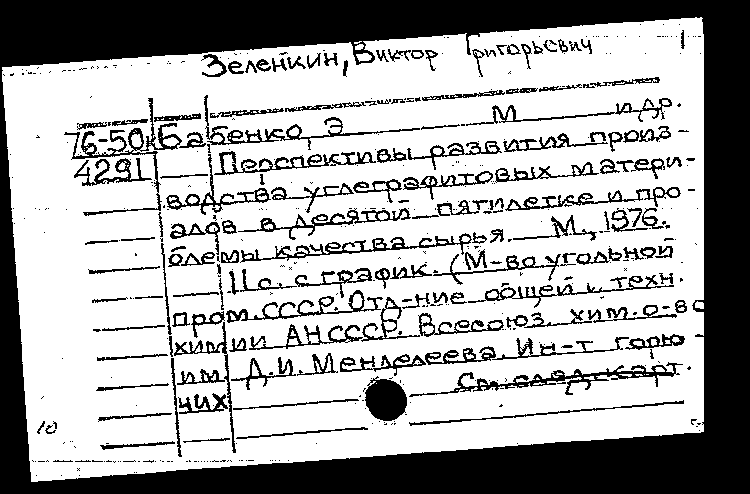 Зеленкин, Виктор Григорьевич
76-50к Бабенко, Э М и др.
4291 Перспективы развития произ-
водства углеграфитовых матери-
алов в десятой пятилетке и про-
блемы качества сырья. М., 1976.
11 с. с график. (М-во угольной
пром. СССР. Отд-ние общей и техн.
химии АН СССР. Всесоюз. хим. о-во
им. Д.И. Менделеева. Ин-т горю-
чих
См. след. карт.
10